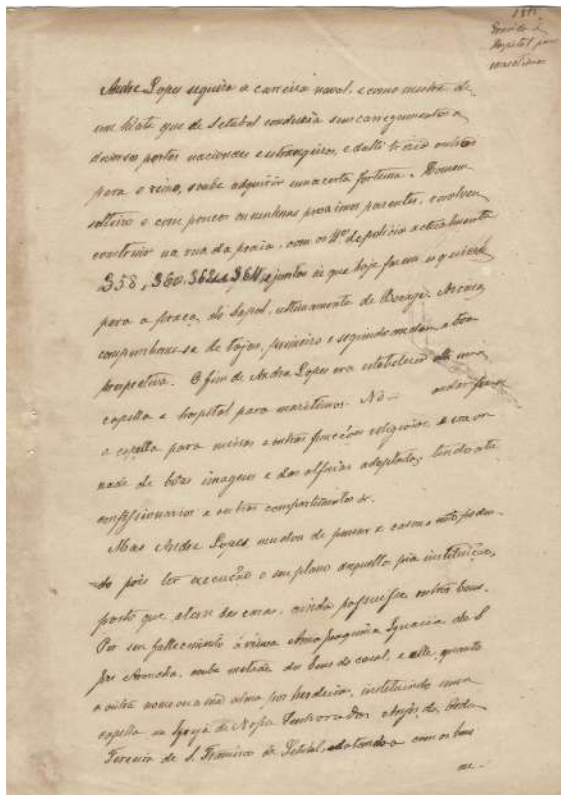 Hospital para
maritimos
André Lopes seguira a carreira naval, e como mestre de
um hiate que de Setubal conduzia seus carregamentos a
diversos portos nacionaes e estrangeiros, e dalli trazia outros
para o reino, soube adquirir uma certa fortuna. Homem
solteiro e com poucos ou nenhuns proximos parentes, resolveu
construir na rua da praia, com os Nos. de policia actualmente
358, 360, 362 e 364, e juntos ás que hoje fazem esquina
para a praça do Sapal, ultimamente de Bocage. As casas
compunham-se de lojas, primeiro e segundo andar, e boa
perspectiva. O fim de André Lopes era estabelecer alli uma
capella e hospital para maritimos. No andar
a capella para missas e outras funcções religiosas, e era or
nada de boas imagens e das alfaias adaptadas, tendo até
confissionarios e outros compartimentos &.
Mas André Lopes, mudou de pensar e casou e não poden-
do pois ter execução o seu plano daquella pia instituição,
posto que, alem das casas, ainda possuisse outros bens.
Por seu fallecimento á viuva Anna Joaquina Ignacia de S
José coube metade dos bens do casal, e elle, quanto
a outra nomeou a sua alma por herdeira, instituindo uma
capella na Igreja de Nossa Senhora dos Anjos, da Ordem
Terceira de S. Francisco de Setubal, dotando-a com os bens